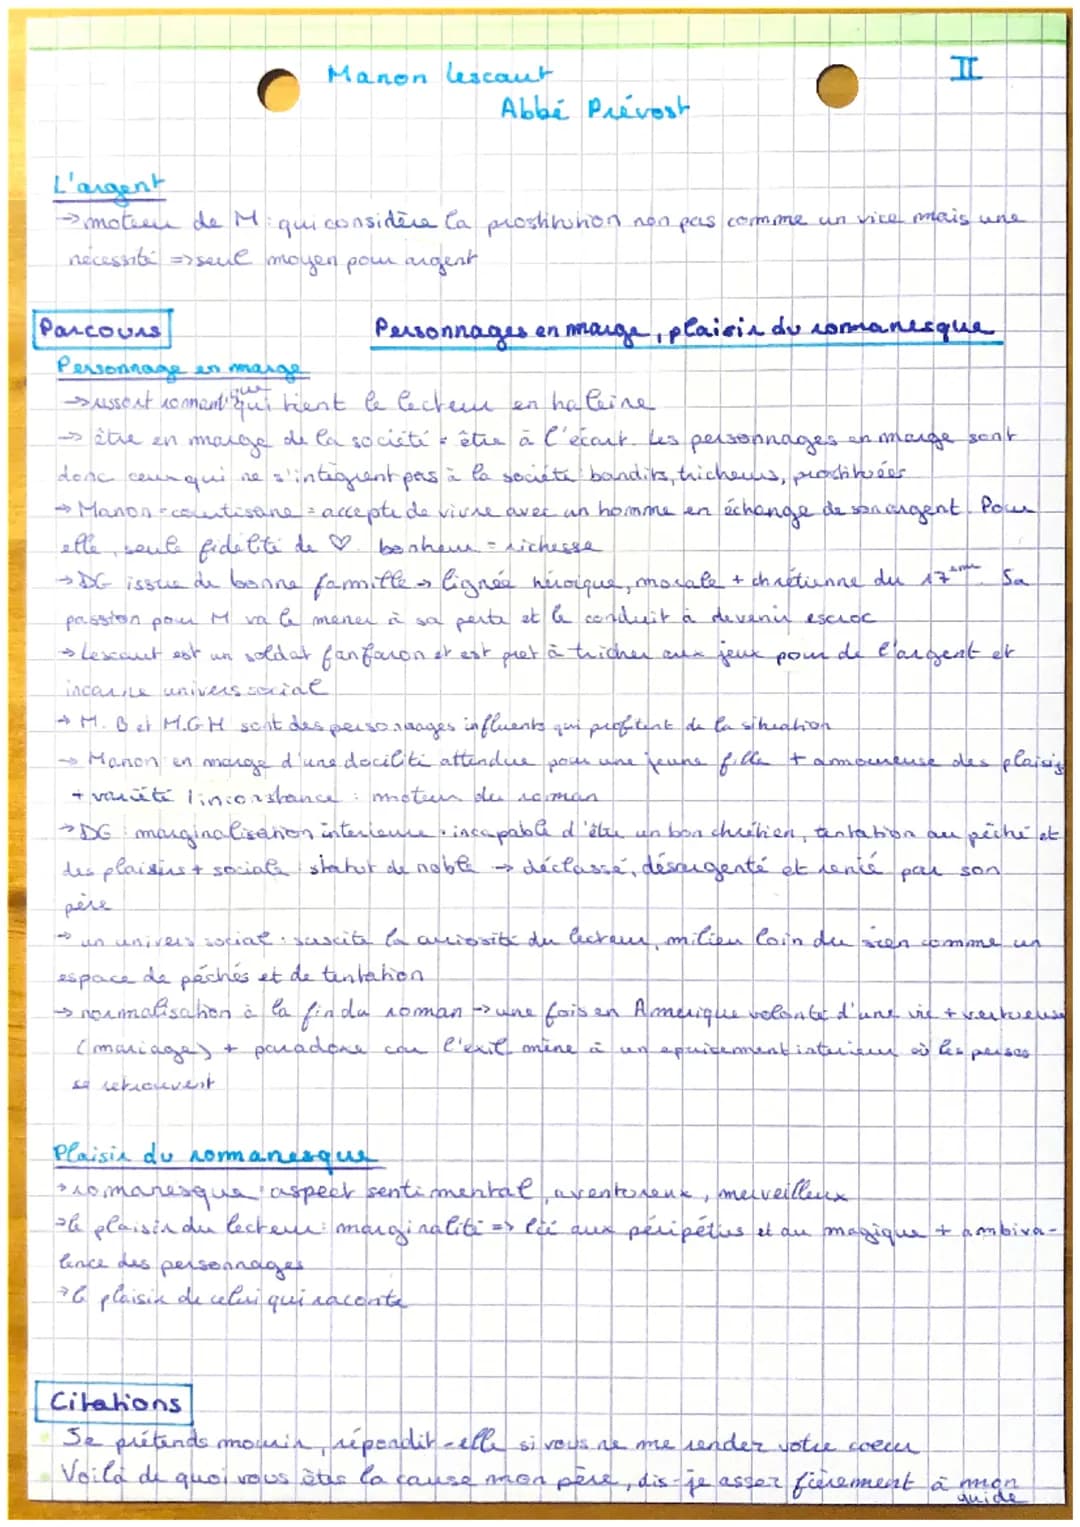 Manon Lescaut
II
Abbé Prévost
L'argent
→ moteur de M : qui considère la prostitution non pas comme un vice mais une
nécessité => seul moyen pour argent
Parcours
Personnages en marge, plaisir du romanesque
Personnage en marge
→ ressort romantique qui tient le lecteur en haleine
→ être en marge de la société = être à l'écart. Les personnages en marge sont
donc ceux qui ne s'intègrent pas à la société : bandits, tricheurs, prostituées
→ Manon = courtisane = accepte de vivre avec un homme en échange de son argent. Pour
elle, seule fidélité de ♡. bonheur = richesse
→ DG issue de bonne famille → lignée héroïque, morale + chrétienne du 17ème. Sa
passion pour M va le mener à sa perte et le conduit à devenir escroc
→ Lescaut est un soldat fanfaron et est pret à tricher aux jeux pour de l'argent et
incarne univers social
→ M. B et M.G.M sont des personnages influents qui profitent de la situation
→ Manon en marge d'une docilité attendue pour une jeune fille + amoureuse des plaisirs
+ variété l'inconstance : moteur du roman
→ DG : marginalisation interieure : incapable d'être un bon chrétien, tentation au péché et
des plaisirs + sociale : statut de noble → déclassé, désargenté et renié par son
père
→ un univers social : suscite la curiosité du lecteur, milieu loin du sien comme un
espace de péchés et de tentation
→ normalisation à la fin du roman → une fois en Amerique volonté d'une vie + vertueuse
(mariage) + paradoxe car l'exil mène à un epuisement interieur où les persos
se retrouvent
Plaisir du romanesque
→ romanesque : aspect sentimental, aventureux, merveilleux
→ le plaisir du lecteur : marginalité => lié aux péripéties et au magique + ambiva-
lence des personnages
→ le plaisir de celui qui raconte
Citations
Je prétends mourir, répondit-elle si vous ne me rendez votre coeur
Voilà de quoi vous êtes la cause mon père, dis-je assez fièrement à mon
guide